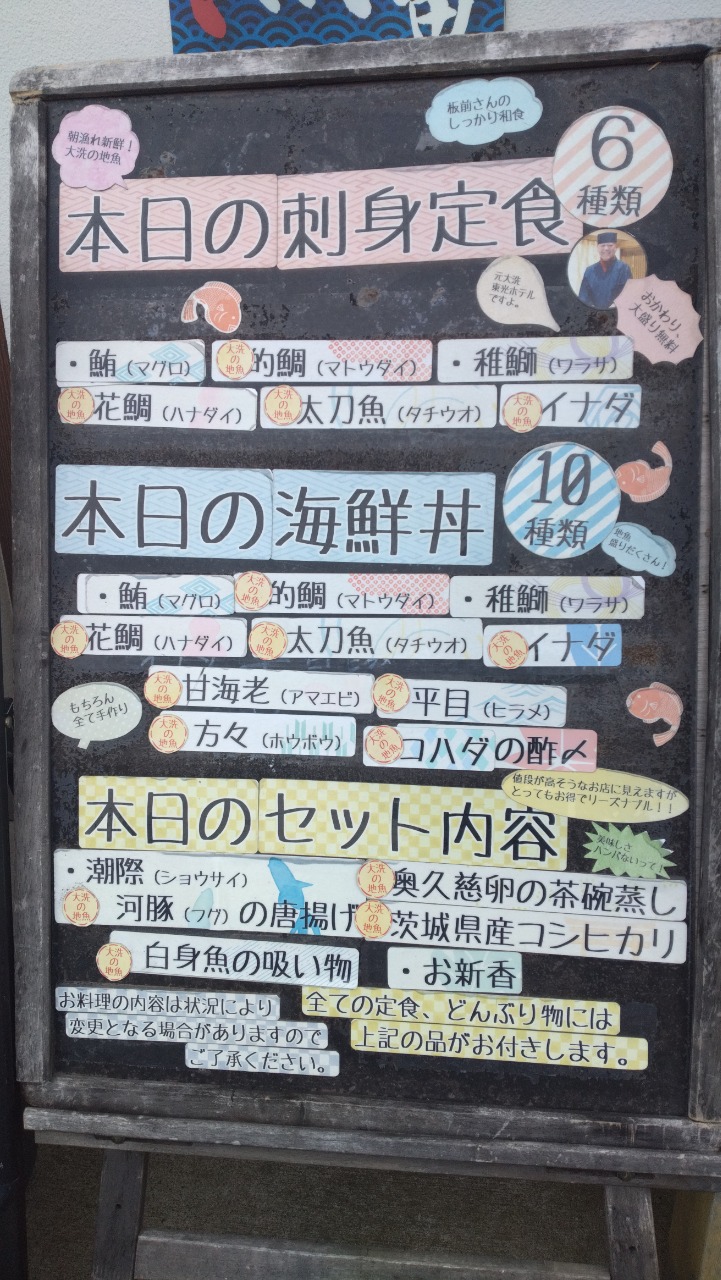 朝漁れ新鮮！
大洗の地魚
板前さんの
しっかり和食
6
種類
本日の刺身定食
元大洗
東光ホテル
ですよ。
おかわり、
大盛り無料
・鮪（マグロ）
大洗の地魚 的鯛（マトウダイ）
・稚鰤（ワラサ）
大洗の地魚 花鯛（ハナダイ）
大洗の地魚 太刀魚（タチウオ）
大洗の地魚 イナダ
本日の海鮮丼
10
種類
地魚
盛りだくさん！
・鮪（マグロ）
大洗の地魚 的鯛（マトウダイ）
・稚鰤（ワラサ）
大洗の地魚 花鯛（ハナダイ）
大洗の地魚 太刀魚（タチウオ）
大洗の地魚 イナダ
もちろん
全て手作り
大洗の地魚 甘海老（アマエビ）
大洗の地魚 平目（ヒラメ）
大洗の地魚 方々（ホウボウ）
大洗の地魚 コハダの酢〆
値段が高そうなお店に見えますが
とってもお得でリーズナブル！！
本日のセット内容
美味しさ
ハンパないって！
・潮際（ショウサイ）
大洗の地魚 河豚（フグ）の唐揚げ
大洗の地魚 奥久慈卵の茶碗蒸し
大洗の地魚 茨城県産コシヒカリ
大洗の地魚 白身魚の吸い物
・お新香
お料理の内容は状況により
変更となる場合がありますので
ご了承ください。
全ての定食、どんぶり物には
上記の品がお付きします。